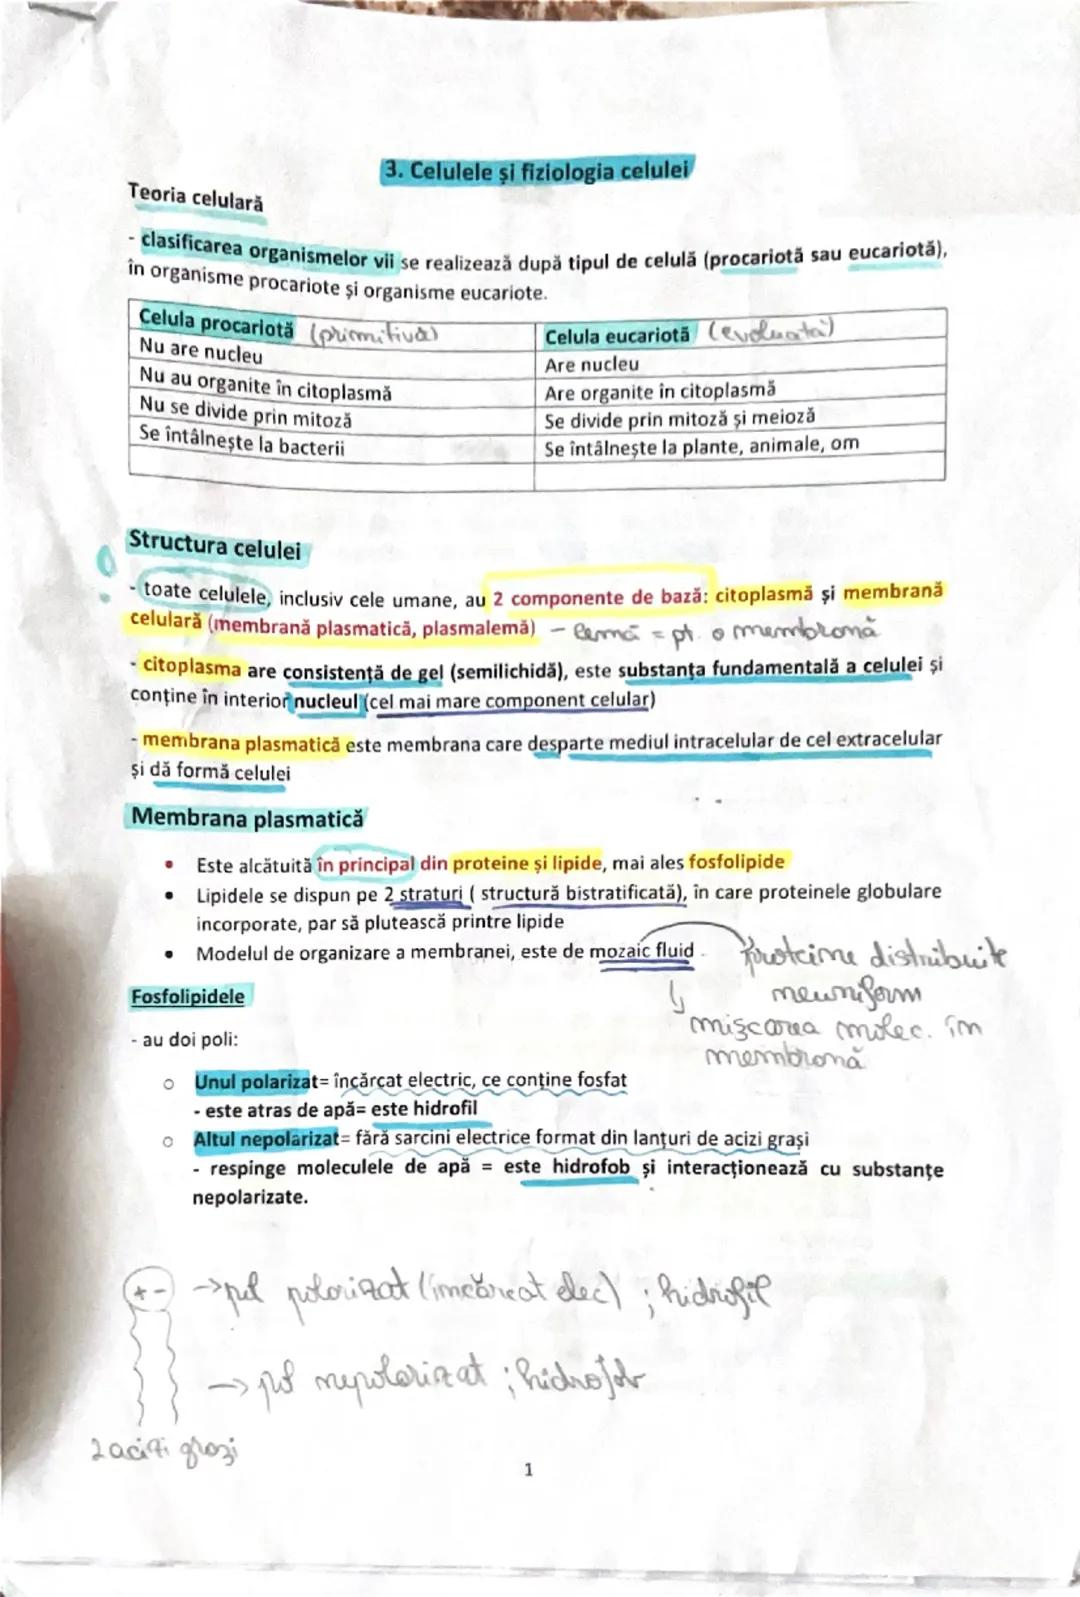 3. Celulele și fiziologia celulei
Teoria celulară
- clasificarea organismelor vii se realizează după tipul de celulă (procariotă sau eucariotă),
în organisme procariote și organisme eucariote.
Celula procariotă (primitivă) Celula eucariotă (evoluată)
Nu are nucleu Are nucleu
Nu au organite în citoplasmă Are organite în citoplasmă
Nu se divide prin mitoză Se divide prin mitoză și meioză
Se întâlnește la bacterii Se întâlnește la plante, animale, om
Structura celulei
- toate celulele, inclusiv cele umane, au 2 componente de bază: citoplasmă și membrană
celulară (membrană plasmatică, plasmalemă) - lemă = pt. o membrană
- citoplasma are consistență de gel (semilichidă), este substanța fundamentală a celulei și
conține în interior nucleul (cel mai mare component celular)
- membrana plasmatică este membrana care desparte mediul intracelular de cel extracelular
și dă formă celulei
Membrana plasmatică
• Este alcătuită în principal din proteine și lipide, mai ales fosfolipide
• Lipidele se dispun pe 2 straturi ( structură bistratificată), în care proteinele globulare
incorporate, par să plutească printre lipide
• Modelul de organizare a membranei, este de mozaic fluid . proteine distribuite
neuniform
↳ mișcarea molec. în
membrană
Fosfolipidele
- au doi poli:
o Unul polarizat= încărcat electric, ce conține fosfat
- este atras de apă= este hidrofil
o Altul nepolarizat= fără sarcini electrice format din lanțuri de acizi grași
- respinge moleculele de apă = este hidrofob și interacționează cu substanțe
nepolarizate.
+ - → pol polarizat (încărcat elec) ; hidrofil
→ pol nepolarizat ; hidrofob
2 acizi grași
1